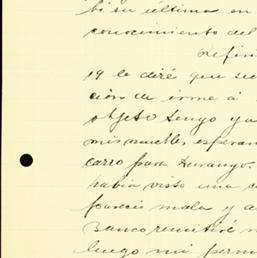 bí su última en
conocimiento del
Refirié
19 le diré que se
ción de irme á
objeto tengo ya
mis muebles esperan
carro para Durango.
había visto una c
pareció mala y a
Banco remitiré
luego mi perm